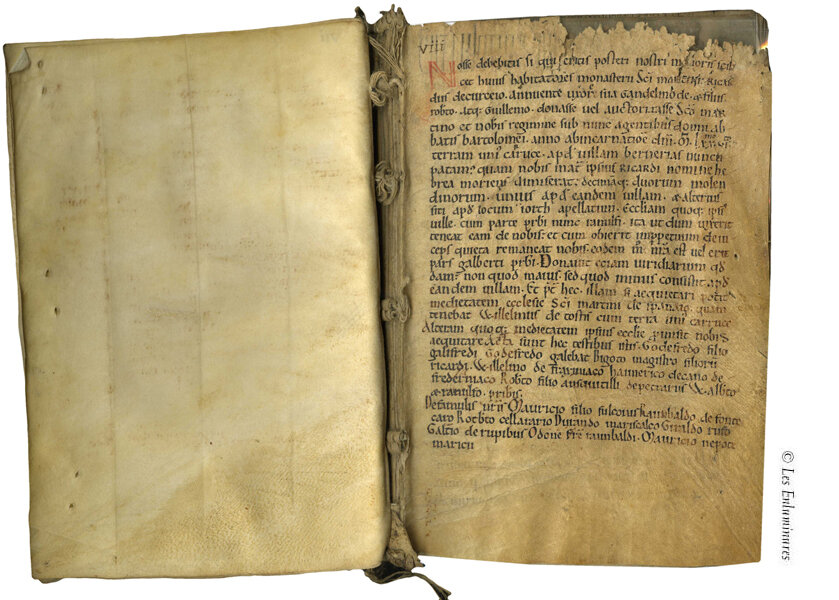 viii
Nosse debebitis si qui eritis posteri nostri maioris
cet huius habitatores monasterii Sci Ricar
dus decurceio. annuente uxore sua Gandelmode. & filiis
robto. atq; Guillelmo. donasse vel auctorizasse Sco mar
tino et nobis regimine sub nunc agentibus domni ab
batis bartolomei. anno ab incarnatione dni.
terram uni carruce. apd villam bernerias nuncu
patam; quam nobis mat ipsius Ricardi nomine he
brea moriens dimiserat; decimaq; duorum molen
dinorum. unius apd eandem villam. & alterius
siti apd locum iorth apellatum. Eccliam quoq; ipsi
ville. cum parte prbi nunc ranulfi. ita ut dum vixerit
teneat eam de nobis: et cum obierit inppetuum dein
ceps quieta remaneat nobis. eodem m est vel erit
pars galberti prbi. Donavit eciam viridiarium qd
dam. non quod maius. sed quod minus consistit apd
eandem villam. Et hec. illam si acquietari potit
medietatem ecclesie Sci martini de quam
tenebat Willelmus de tostis cum terra uni carruce
Alteram quoq; medietatem ipsius ecclie nobis
acquitare Acta sunt hec testibus istis. Godefredo filio
galifredi Godefredo galebat Bigoto magistro filiorum
ricardi. Willelmo de hannerico decano de
Robto filio W. albto
& ranulfo. pribis.
De famulis nris Mauricio filio fulcouis Raimbaldo de fonte
caro Rotbto cellarario Durando mariscalco Giraldo rufo
Galtio de rupibus Odone fre raimbaldi. Mauricio nepote
maricii
© Les Enluminures